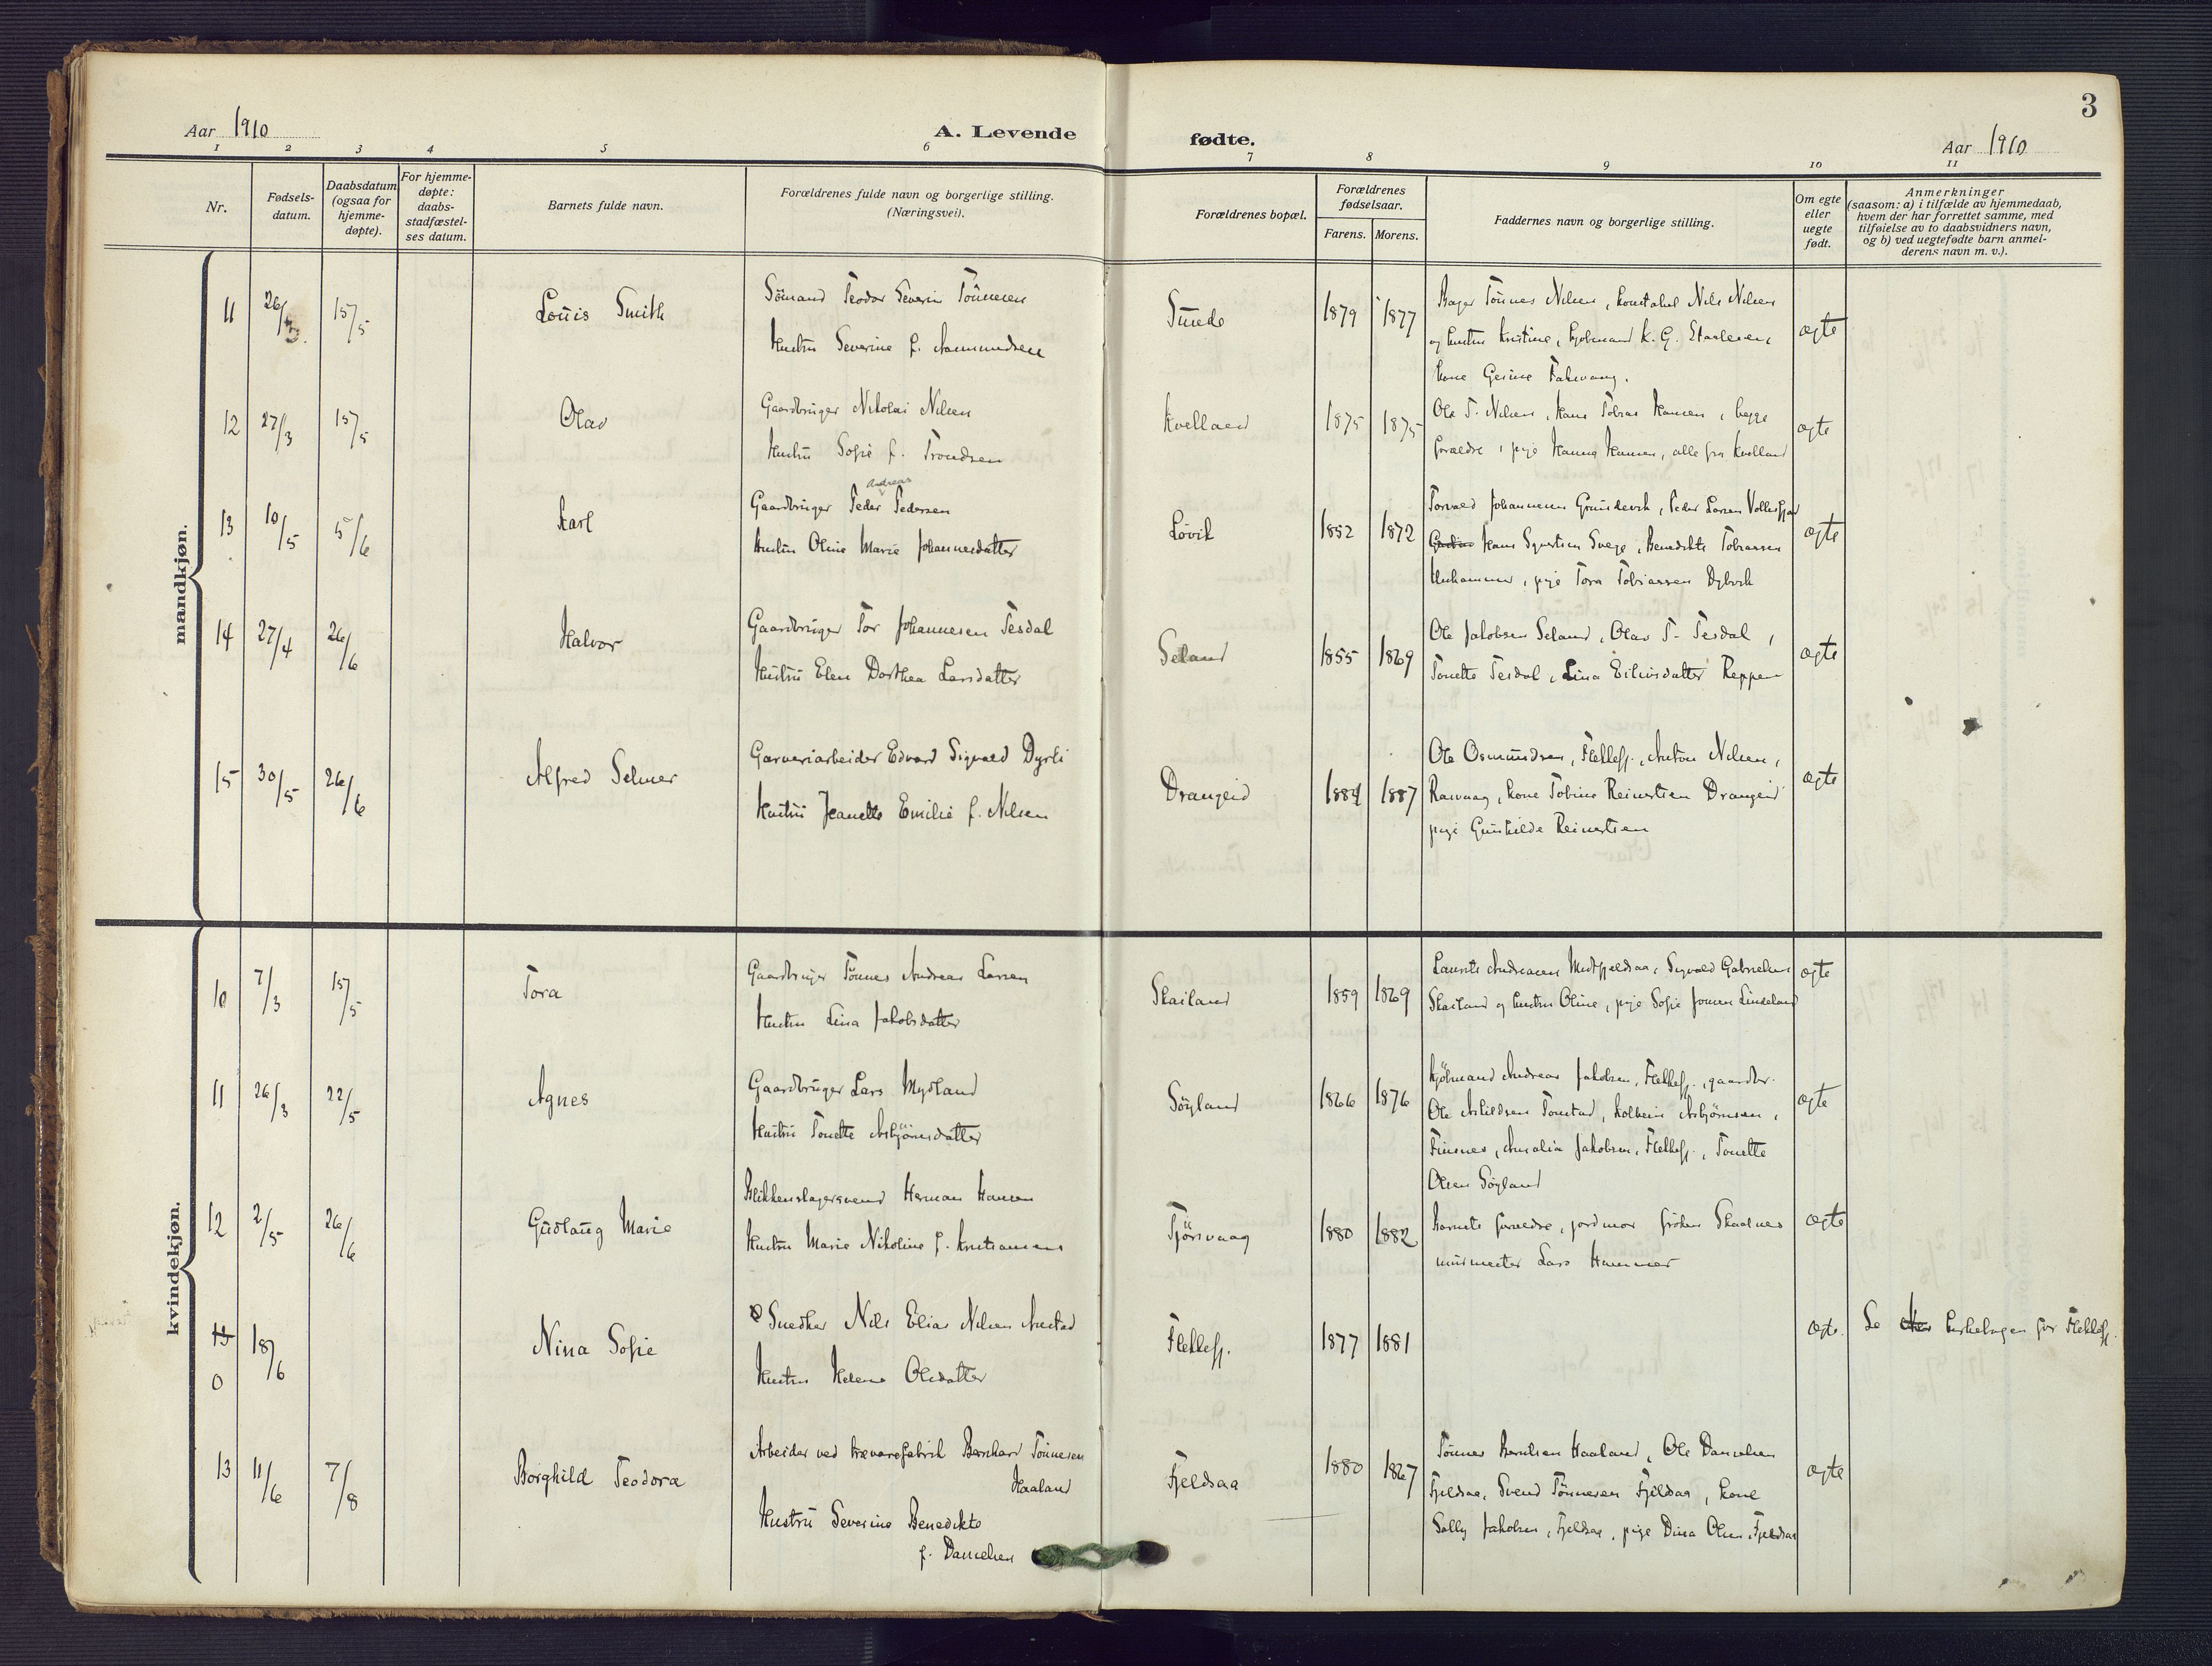 3
Aar 1910
A. Levende
fødte.
Aar 1910
1 2 3 4 5 6 7 8 9 10 11
Nr.
Fødsels-
datum.
Daabsdatum
(ogsaa for
hjemme-
døpte).
For hjemme-
døpte:
daabs-
stadfæstel-
ses datum.
Barnets fulde navn.
Forældrenes fulde navn og borgerlige stilling.
(Næringsvei).
Forældrenes bopæl.
Forældrenes
fødselsaar.
Farens. Morens.
Faddernes navn og borgerlige stilling.
Om egte
eller
uegte
født.
Anmerkninger
(saasom: a) i tilfælde av hjemmedaab,
hvem der har forrettet samme, med
tilføielse av to daabsvidners navn,
og b) ved uegtefødte barn anmel-
derens navn m. v.).
mandkjøn.
11 26/3. 15/5 Louis Smith
Sömand Teodor Severin Tönnesen
Hustru Severine f. Aamundsen
Smede 1879 1877
Bager Tönnes Nilsen, konstabel Nils Nilsen
og hustru Kristine, kjøbmand K. G.
kone Gesine
egte
12 27/3 15/5 Olav
Gaardbruger Nikolai Nilsen
Hustru Sofie f. Trondsen
Kvelland 1875 1875
Ole T. Nilsen, Hans Tobias Hansen, begge
forældre, pige Hanna Hansen, alle fra Kvelland
egte
13 10/5 5/6 Karl
Andreas
Gaardbruger Peder Pedersen
Hustru Oline Marie Johannesdatter
Lövik 1852 1872
Torvald Johannesen Grundevik, Peder Larsen Vollesfjord
Hans Syvertsen Svege, Benedikte Tobiassen
pige Tora Tobiassen Dybvik
egte
14 27/4 26/6 Halvor
Gaardbruger Tor Johannesen Tesdal
Hustru Elen Dorthea Larsdatter
Seland 1855 1869
Ole Jakobsen Seland, Olav T. Tesdal,
Tonette Tesdal, Lina Eilivsdatter Reppen
egte
15 30/5 26/6 Alfred Selmer
Garveriarbeider Edvard Sigvald Dyrli
Hustru Jeanette Emilie f. Nilsen
Drangeid 1884 1887
Ole Osmundsen, Flekkefj., Anton Nilsen,
Rasvaag, kone Tobine Reinertsen Drangeid
pige Gunhilde Reinertsen
egte
kvindekjøn.
10 7/3 15/5 Tora
Gaardbruger Tönnes Andreas Larsen
Hustru Lina Jakobsdatter
Skailand 1859 1869
Laurits Andreasen Midtfjeldsaa, Sigvald Gabrielsen
Skailand og hustru Oline, pige Sofie Jonsen Lindeland
egte
11 26/3 22/5 Agnes
Gaardbruger Lars Mydland
Hustru Tonette Asbjörnsdatter
Söyland 1866 1876
Kjöbmand Andreas Jakobsen, Flekkefj., gaardbr.
Ole Askildsen Tonstad, Kolbein Asbjörnsen,
Finsnes, Amalia Jakobsen, Flekkefj., Tonette
Olsen Söyland
egte
12 2/5 26/6 Gudlaug Marie
Blikkenslagersvend Herman Hansen
Hustru Marie Nikoline f. Kristiansen
Tjörsvaag 1880 1882
Barnets forældre, jordmor fröken Skaasnes
murmester Lars Hammer
egte
13
0
18/6 Nina Sofie
Snedker Nils Elias Nilsen Austad
Hustru Helene Olsdatter
Flekkefj. 1877 1881
egte.
Se kirkebogen for Flekkefj.
13 11/6 7/8 Borghild Teodora
Arbeider ved trævarefabrik Bernhard Tönnesen
Haaland
Hustru Severine Benedikte
f. Danielsen
Fjeldsaa 1880 1867
Tönnes Berntsen Haaland, Ole Danielsen
Fjeldsaa, Svend Tönnesen Fjeldsaa, kone
Sally Jakobsen, Fjeldsaa, pige Dina Olsen, Fjeldsaa
egte